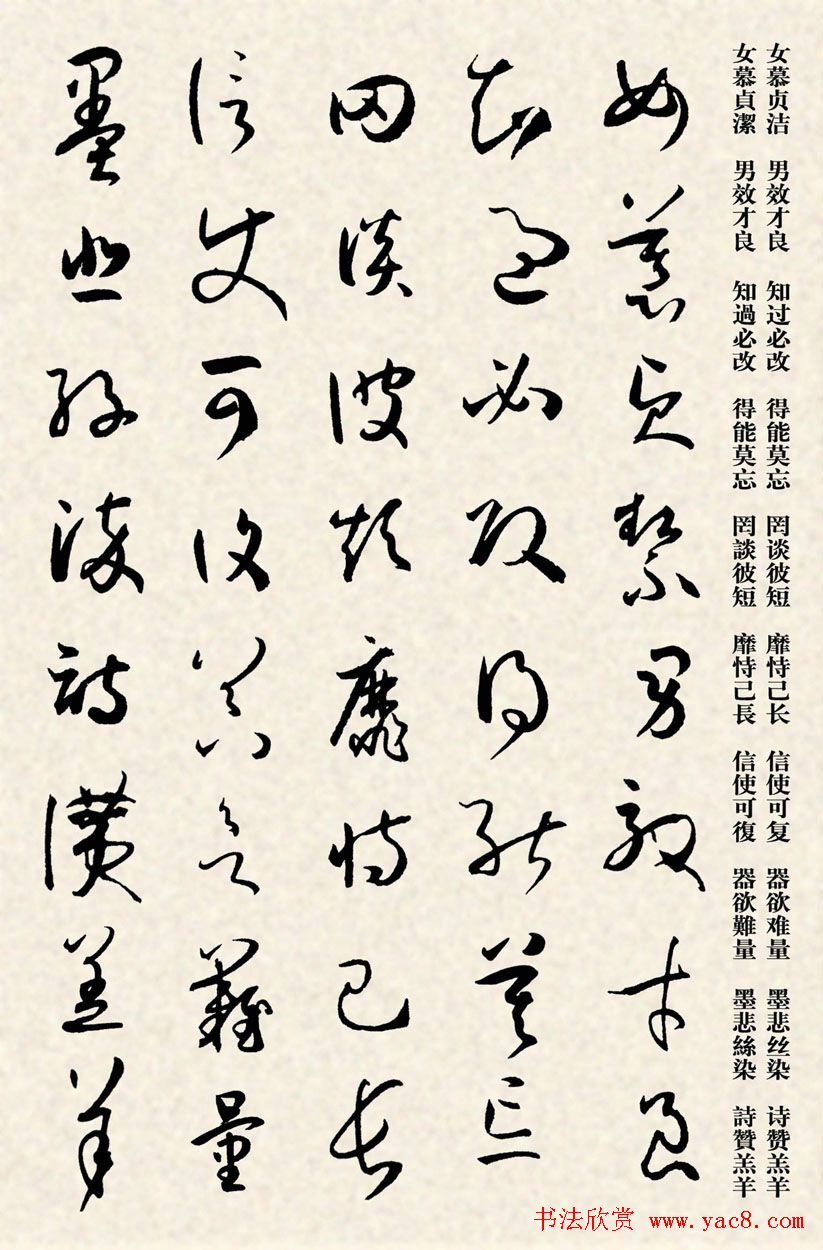 女慕贞洁 男效才良 知过必改 得能莫忘 罔谈彼短 靡恃己长 信使可复 器欲难量 墨悲丝染 诗赞羔羊
女慕貞潔 男效才良 知過必改 得能莫忘 罔談彼短 靡恃己長 信使可復 器欲難量 墨悲絲染 詩贊羔羊
女慕貞潔男效才良
知過必改得能莫忘
罔談彼短靡恃己長
信使可復器欲難量
墨悲絲染詩讚羔羊
书法欣赏 www.yac8.com